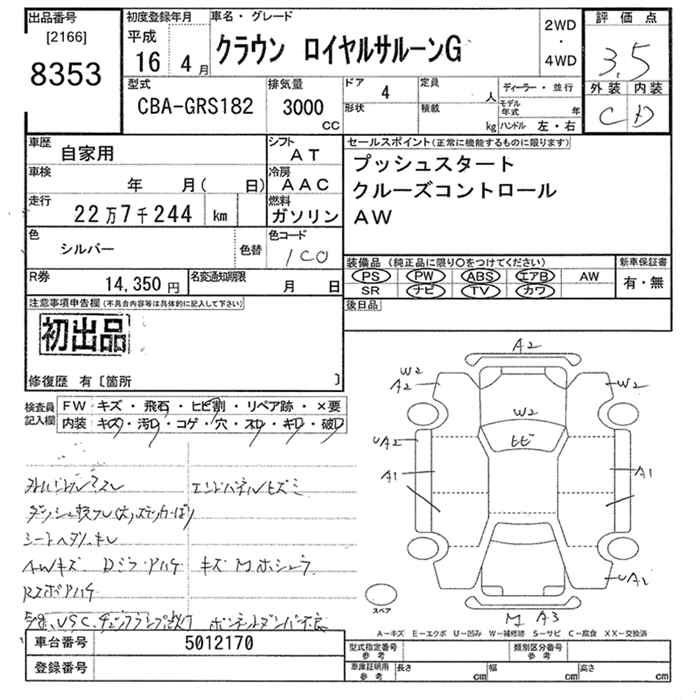 出品番号
[2166]
8353
初度登録年月
平成
16 4月
車名・グレード
クラウン ロイヤルサルーンG
2WD
・
4WD
評価点
3.5
外装 内装
C D
型式
CBA-GRS182
排気量
3000
CC
ドア 4
形状
定員 人
積載 kg
ディーラー・並行
モデル年式 年
ハンドル 左・右
車歴 自家用
シフト AT
車検 年 月( 日)
冷房 AAC
走行 22万7千244 km
燃料 ガソリン
色 シルバー 色替
色コード 1C0
R券 14,350円
名変通知期限 月 日
セールスポイント(正常に機能するものに限ります)
プッシュスタート
クルーズコントロール
AW
装備品(純正品に限り○をつけてください)
PS PW ABS エアB AW
SR ナビ TV カワ
新車保証書
有・無
後日品
注意事項申告欄(不具合内容等は具体的に記入して下さい)
初出品
修復歴 有〔箇所 〕
検査員記入欄
FW キズ・飛石・ヒビ割・リペア跡・×要
内装 キズ・汚れ・コゲ・穴・スレ・キレ・破れ
エンドパネルヒズミ
シートヘタリ・キレ
AWキズ
A2
W2
A2
W2
W2
ヒビ
UA2
A1
A1
UA1
M A3
スペア
A−キズ E−エクボ U−凹み W−補修跡 S−サビ C−腐食 XX−交換済
車台番号 5012170
登録番号
型式指定番号 参考
類別区分番号 参考
車庫証明用 参考
長さ cm
幅 cm
高さ cm